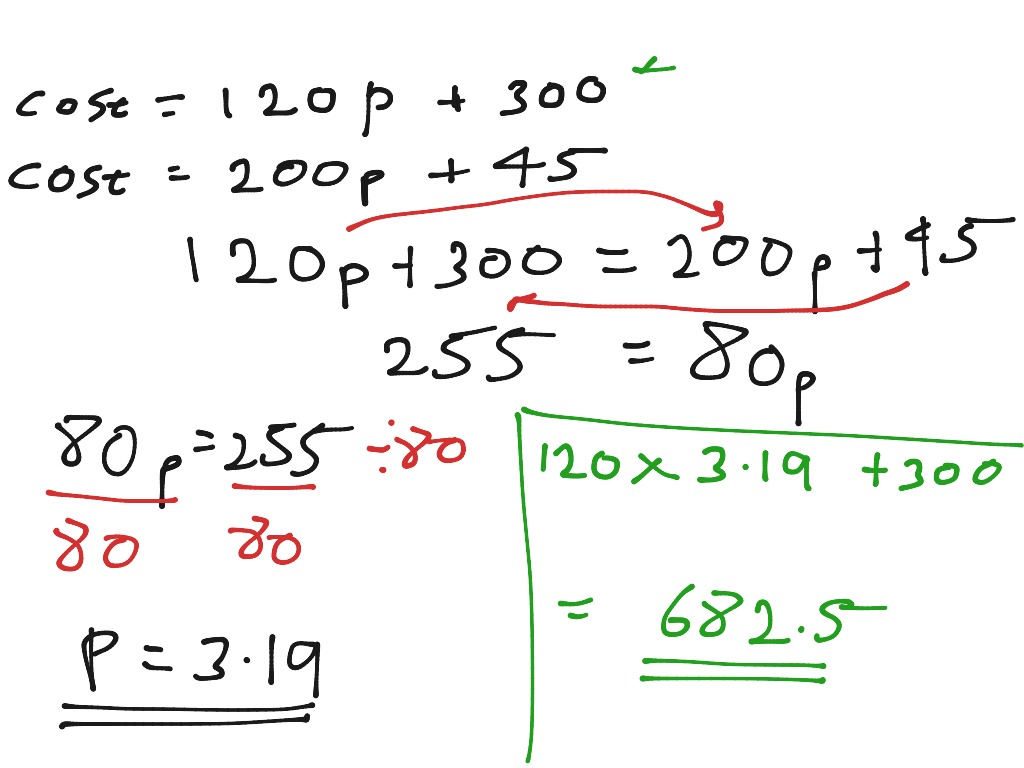 cost = 120p + 300
cost = 200p + 45
120p + 300 = 200p + 45
255 = 80p
80p = 255 ÷80
80 80
P = 3.19
120 × 3.19 + 300
= 682.5